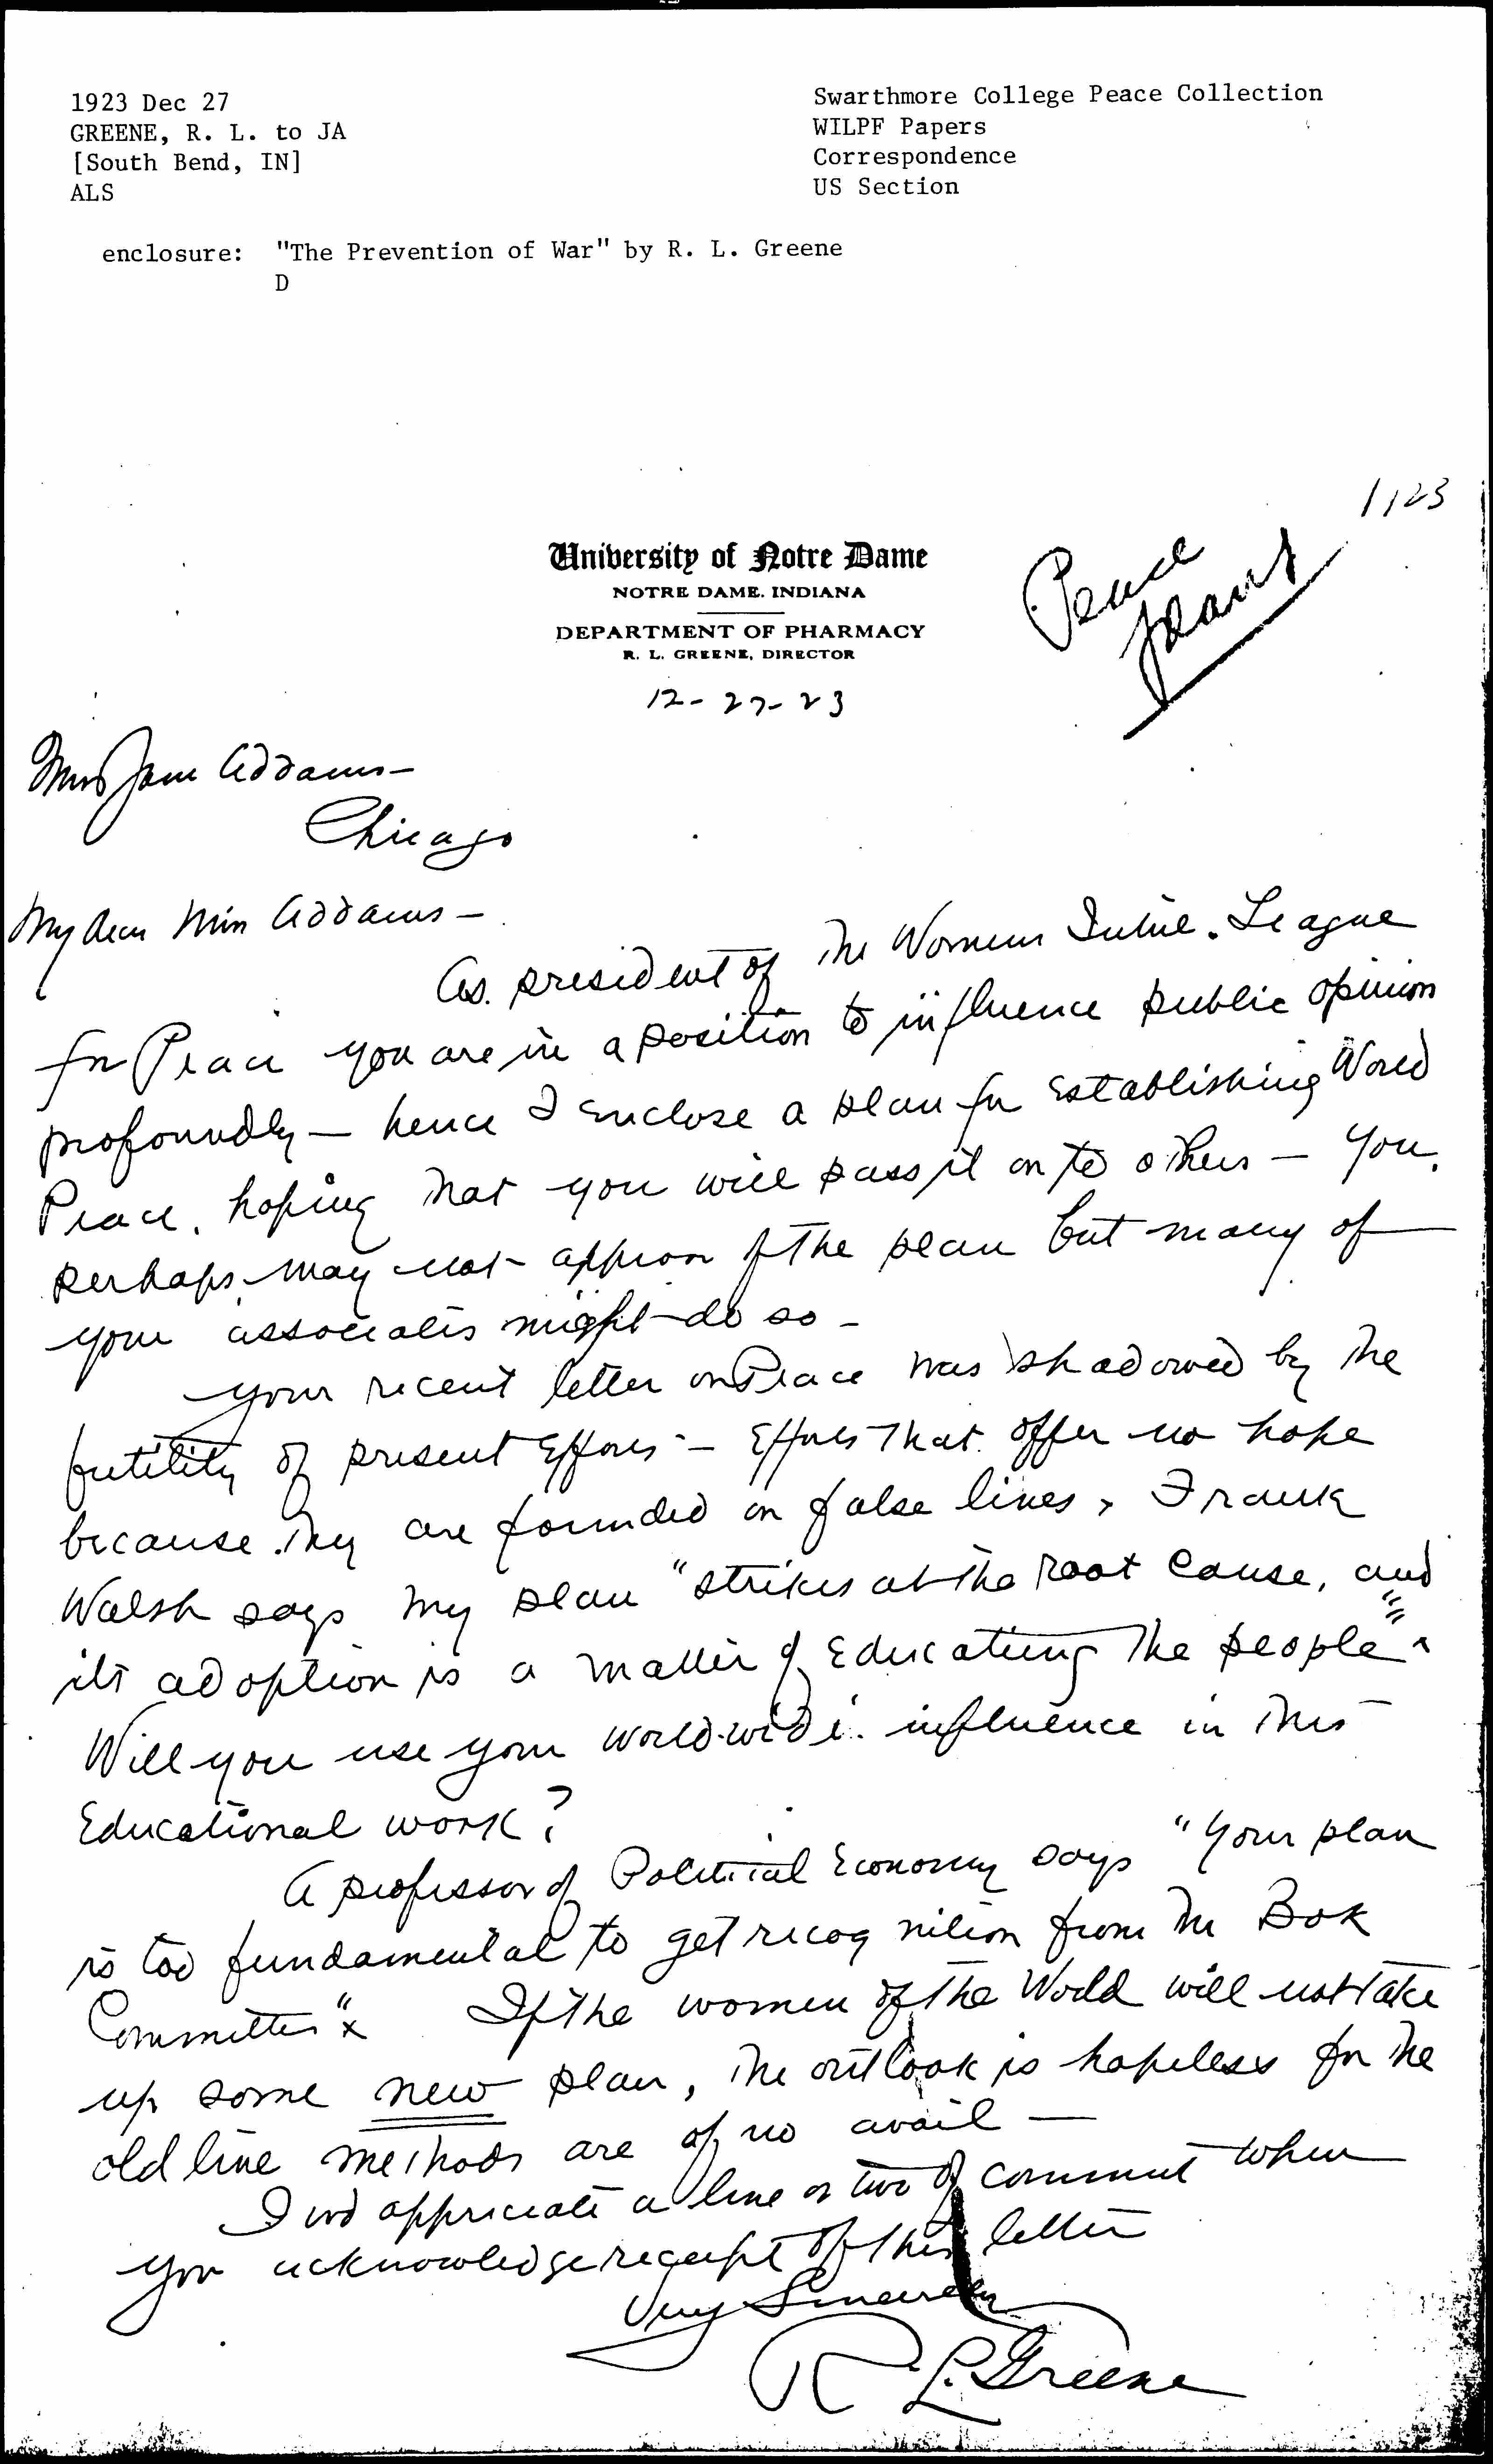 1923 Dec 27
GREENE, R. L. to JA
[South Bend, IN]
ALS
Swarthmore College Peace Collection
WILPF Papers
Correspondence
US Section
enclosure: "The Prevention of War" by R. L. Greene
D
1123
University of Notre Dame
NOTRE DAME. INDIANA
DEPARTMENT OF PHARMACY
R. L. GREENE, DIRECTOR
Peace
plans
12-27-23
Miss Jane Addams—
Chicago
My dear Miss Addams—
As president of the Womens Intnl. League
for Peace you are in a position to influence public opinion
profoundly — hence I enclose a plan for establishing World
Peace, hoping that you will pass it on to others — You,
perhaps may not approve of the plan but many of
your associates might do so —
Your recent letter on Peace was shadowed by the
futility of present efforts — Efforts that offer no hope
because they are founded on false lines, Frank
Walsh says my plan "strikes at the root cause, and
its adoption is a matter of Educating the people"
Will you use your world-wide influence in this
Educational work?
A professor of Political Economy says "Your plan
is too fundamental to get recognition from the Bok
Committee" x If the women of the World will not take
up some new plan, the outlook is hopeless for the
old line methods are of no avail —
I wd appreciate a line or two of comment when
you acknowledge receipt of this letter
Very Sincerely
R. L. Greene